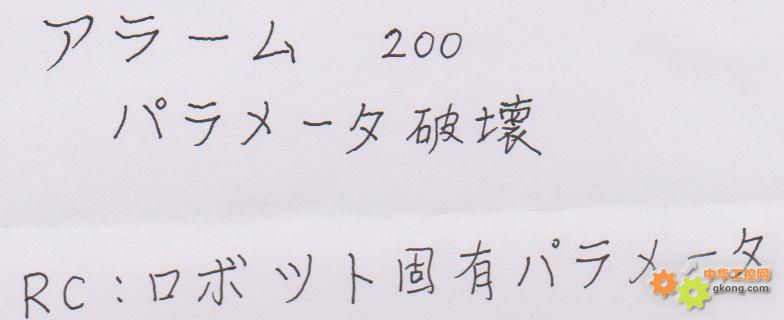 アラーム 200
パラメータ破壊
RC:ロボット固有パラメータ
中华工控网
gkong.com